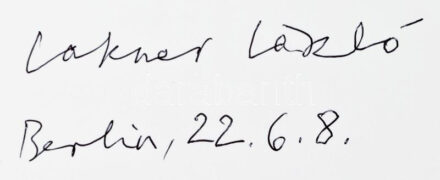 Lakner László
Berlin, 22.6.8.
darabanth